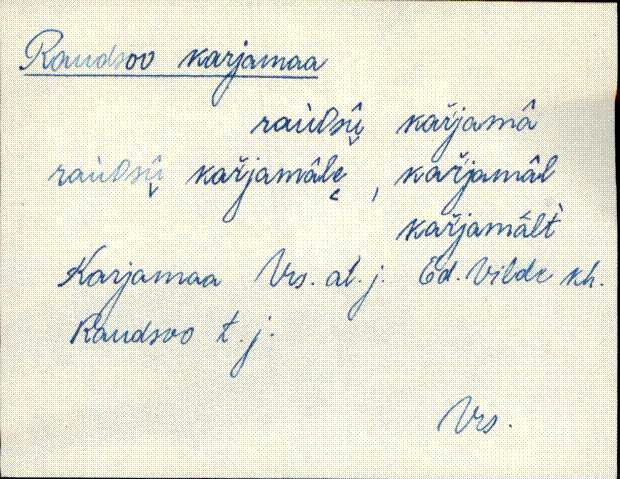 Raudsoo karjamaa
raùDsū̬ kaŕjamā
raùDsū̬ kaŕjamāle̬, kaŕjamāl
kaŕjamālt̀
Karjamaa Vrs. al. j. Ed. Vilde kh.
Raudsoo t. j.
Vrs.